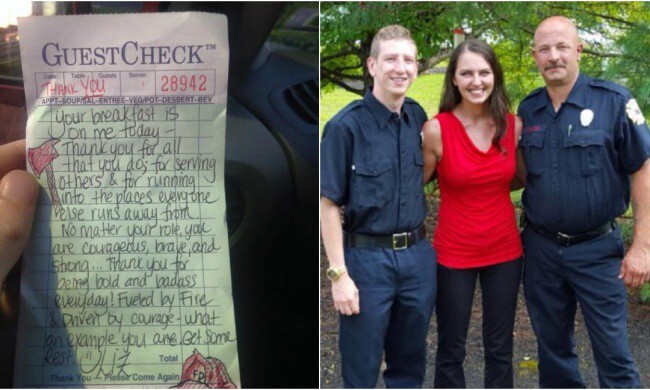 GUESTCHECK™
Date Table Guests Server
THANK YOU 28942
APPT-SOUP/SAL-ENTREE-VEG/POT-DESSERT-BEV
Your breakfast is
on me today -
Thank you for all
that you do; for serving
others & for running
into the places everyone
else runs away from.
No matter your role, you
are courageous, brave, and
strong... Thank you for
being bold and badass
everyday! Fueled by Fire
& Driven by courage - what
an example you are. Get some
rest. Liz
Total
Thank You - Please Come Again
FD